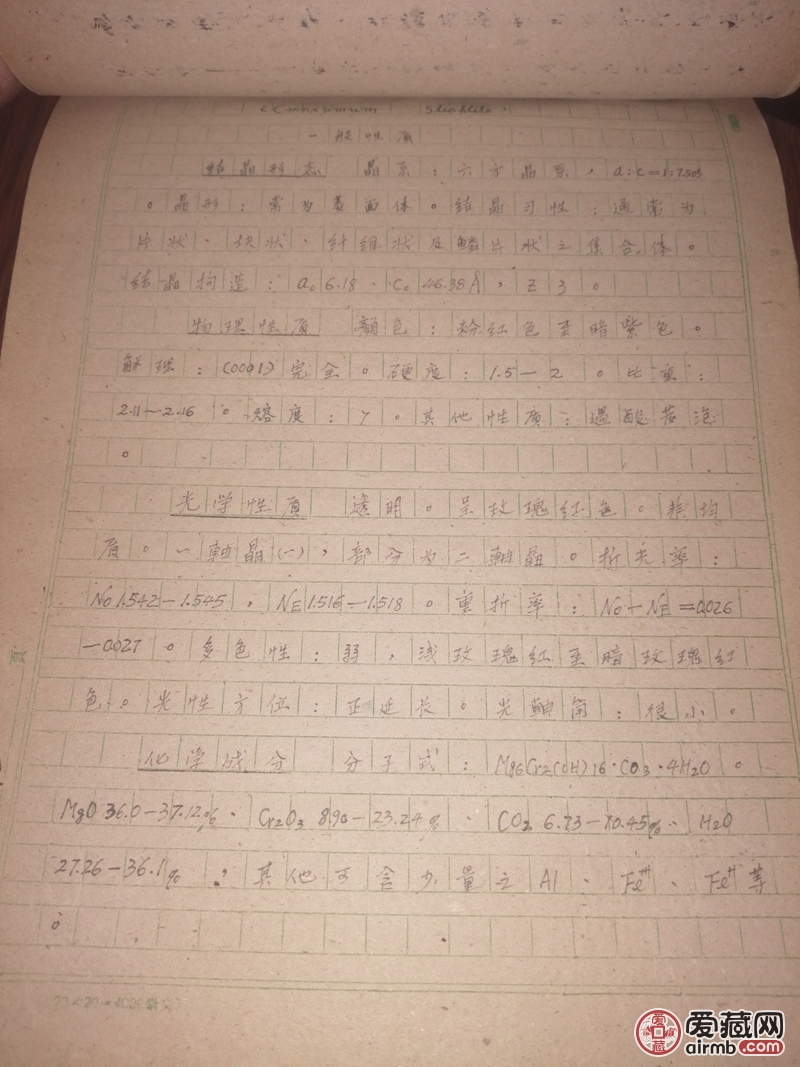 Stichtite)
一般性质
结晶形态 晶系：六方晶系，a:c=1:7.505
。晶形：常为菱面体。结晶习性：通常为
片状、块状、纤维状及鳞片状之集合体。
结晶构造：a₀ 6.18、c₀ 46.38Å，Z 3。
物理性质 颜色：粉红色至暗紫色。
解理：(0001)完全。硬度：1.5—2。比重：
2.11—2.16。熔度：7。其他性质：遇酸发泡
。
光学性质 透明。呈玫瑰红色。非均
质。一轴晶(一)，部分为二轴晶。折光率：
No 1.542—1.545，NE 1.516—1.518。重折率：No—NE=0.026
—0.027。多色性：弱，浅玫瑰红至暗玫瑰红
色。光性方位：正延长。光轴角：很小。
化学成分 分子式：Mg6Cr2(OH)16·CO3·4H2O。
MgO 36.0—37.12%、Cr2O3 8.90—23.24%、CO2 6.73—10.45%、H2O
27.26—36.1%；其他可含少量之Al、Fe、Fe等
。
20×20=400
爱藏网
airmb.com